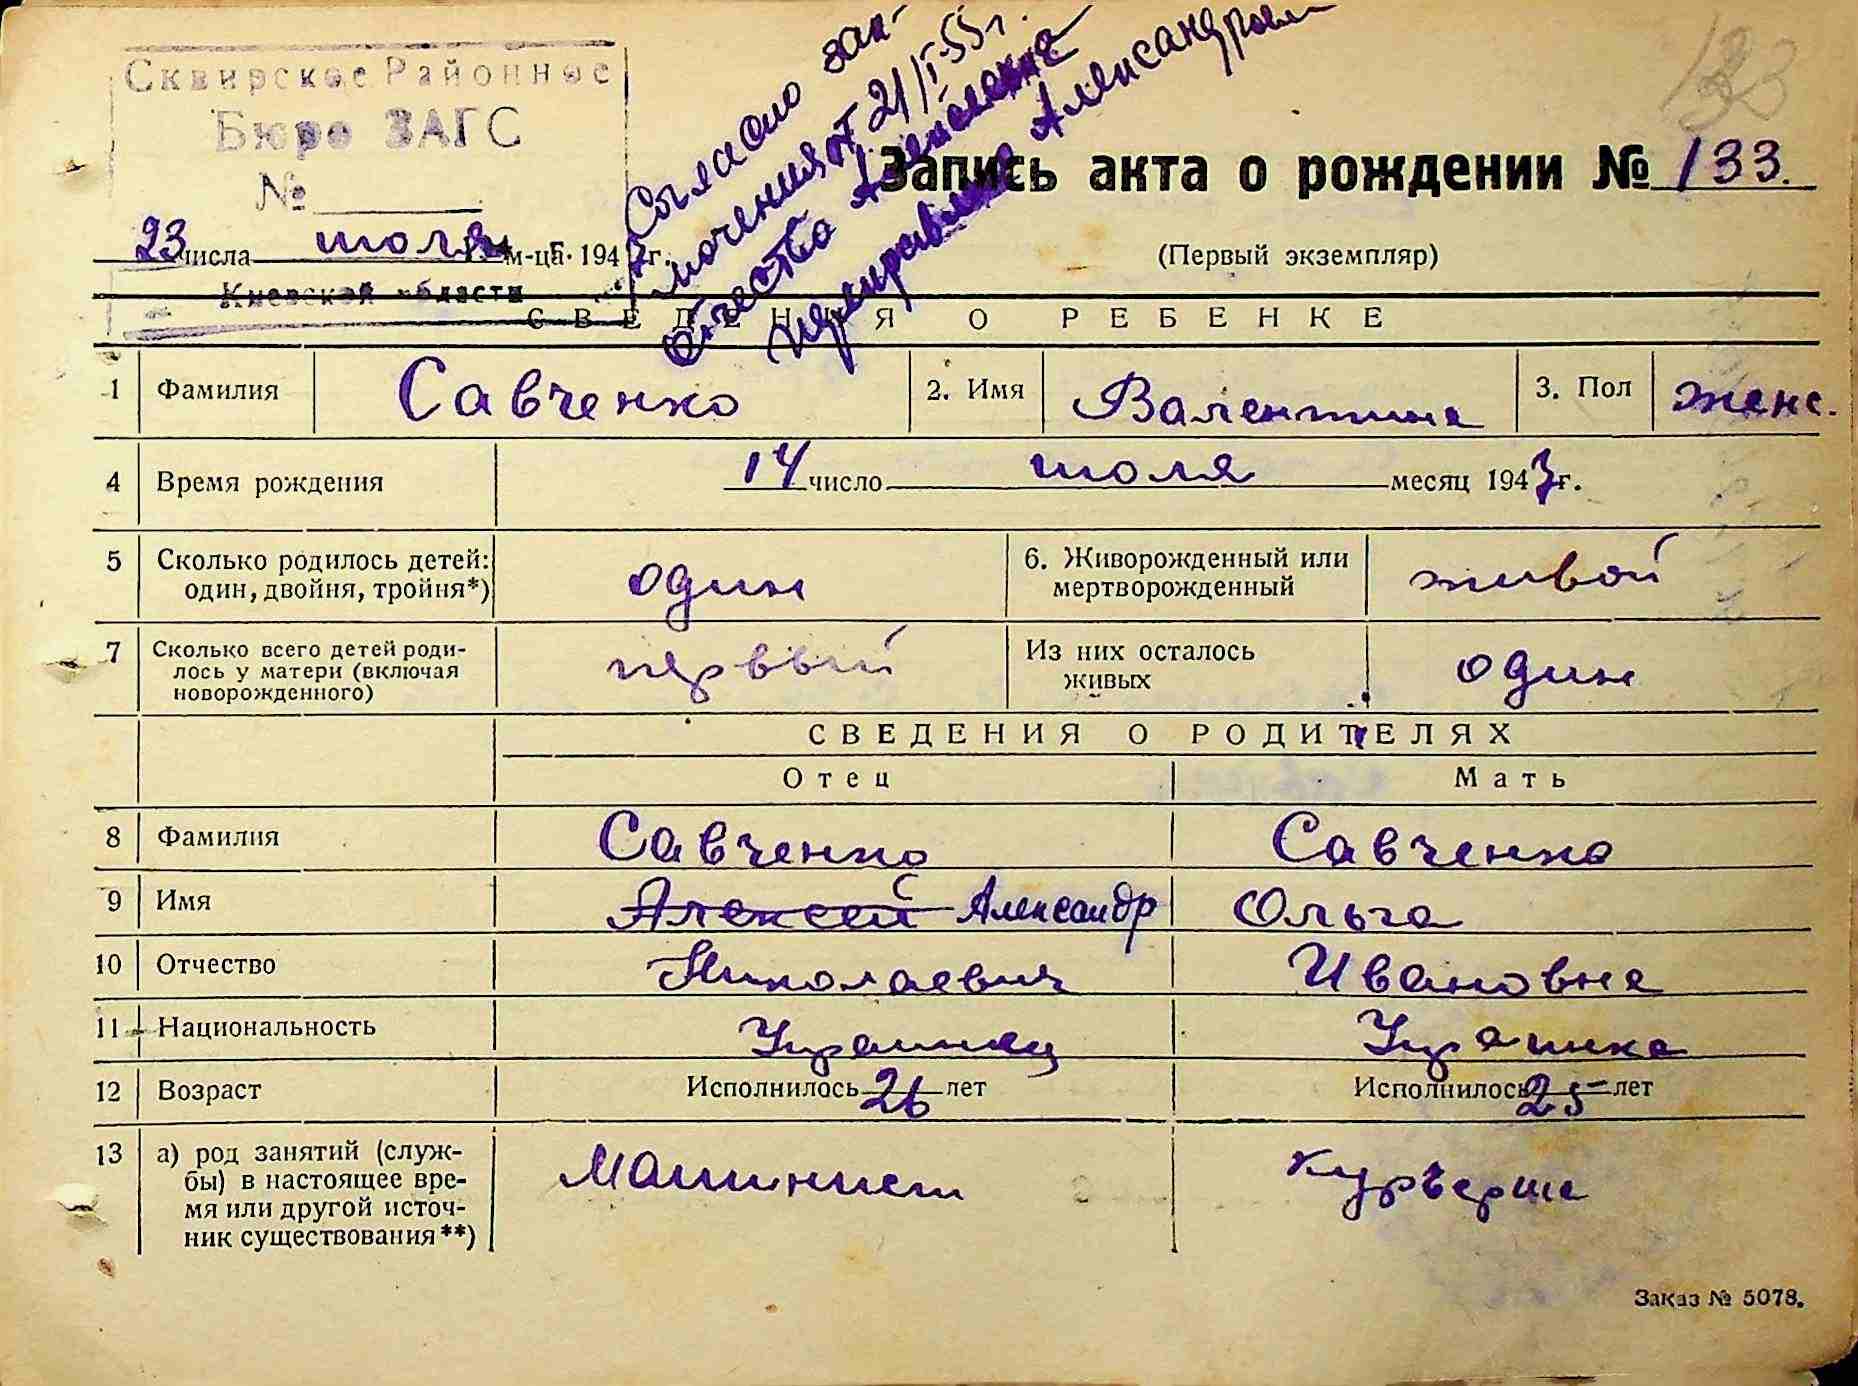 Сквирское Районное
Бюро ЗАГС
№
Согласно зак-
лючения от 21/I.55г.
отчество Алексеевна
исправлено Александровна
133
Запись акта о рождении № 133.
23 числа июля м-ца 1947 г.
(Первый экземпляр)
Киевской области
СВЕДЕНИЯ О РЕБЕНКЕ
1 Фамилия Савченко 2. Имя Валентина 3. Пол женс.
4 Время рождения 14 число июля месяц 1947 г.
5 Сколько родилось детей: один, двойня, тройня*) один 6. Живорожденный или мертворожденный живой
7 Сколько всего детей роди-
лось у матери (включая
новорожденного) первый Из них осталось живых один
СВЕДЕНИЯ О РОДИТЕЛЯХ
Отец Мать
8 Фамилия Савченко Савченко
9 Имя Алексей Александр Ольга
10 Отчество Николаевич Ивановна
11 Национальность Украинец Украинка
12 Возраст Исполнилось 26 лет Исполнилось 25 лет
13 а) род занятий (служ-
бы) в настоящее вре-
мя или другой источ-
ник существования**) Машинист курьерша
Заказ № 5078.